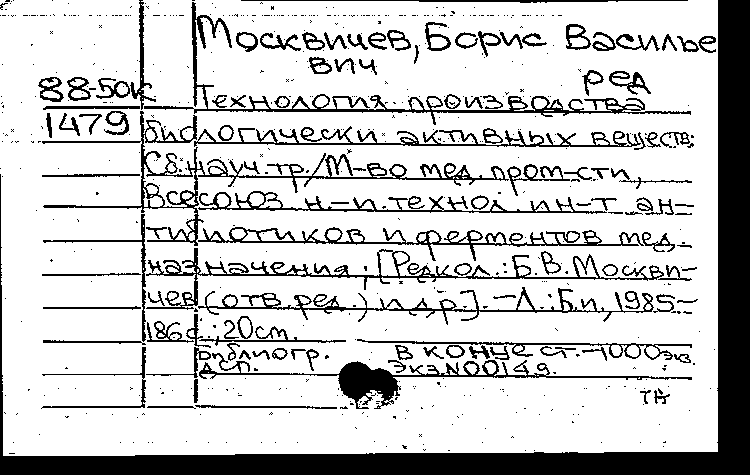 Москвичев, Борис Василье
вич
ред
88-50к Технология производства
1479 биологически активных веществ:
Сб. науч. тр. / М-во мед. пром-сти,
Всесоюз. н.-и. технол. ин-т ан-
тибиотиков и ферментов мед.
назначения; [Редкол.: Б.В. Москви-
чев (отв. ред.) и др.]. - Л.: Б.и., 1985-
186 с.; 20 см.
Библиогр. в конце ст. - 1000 экз.
ДСП. Экз. N00149.